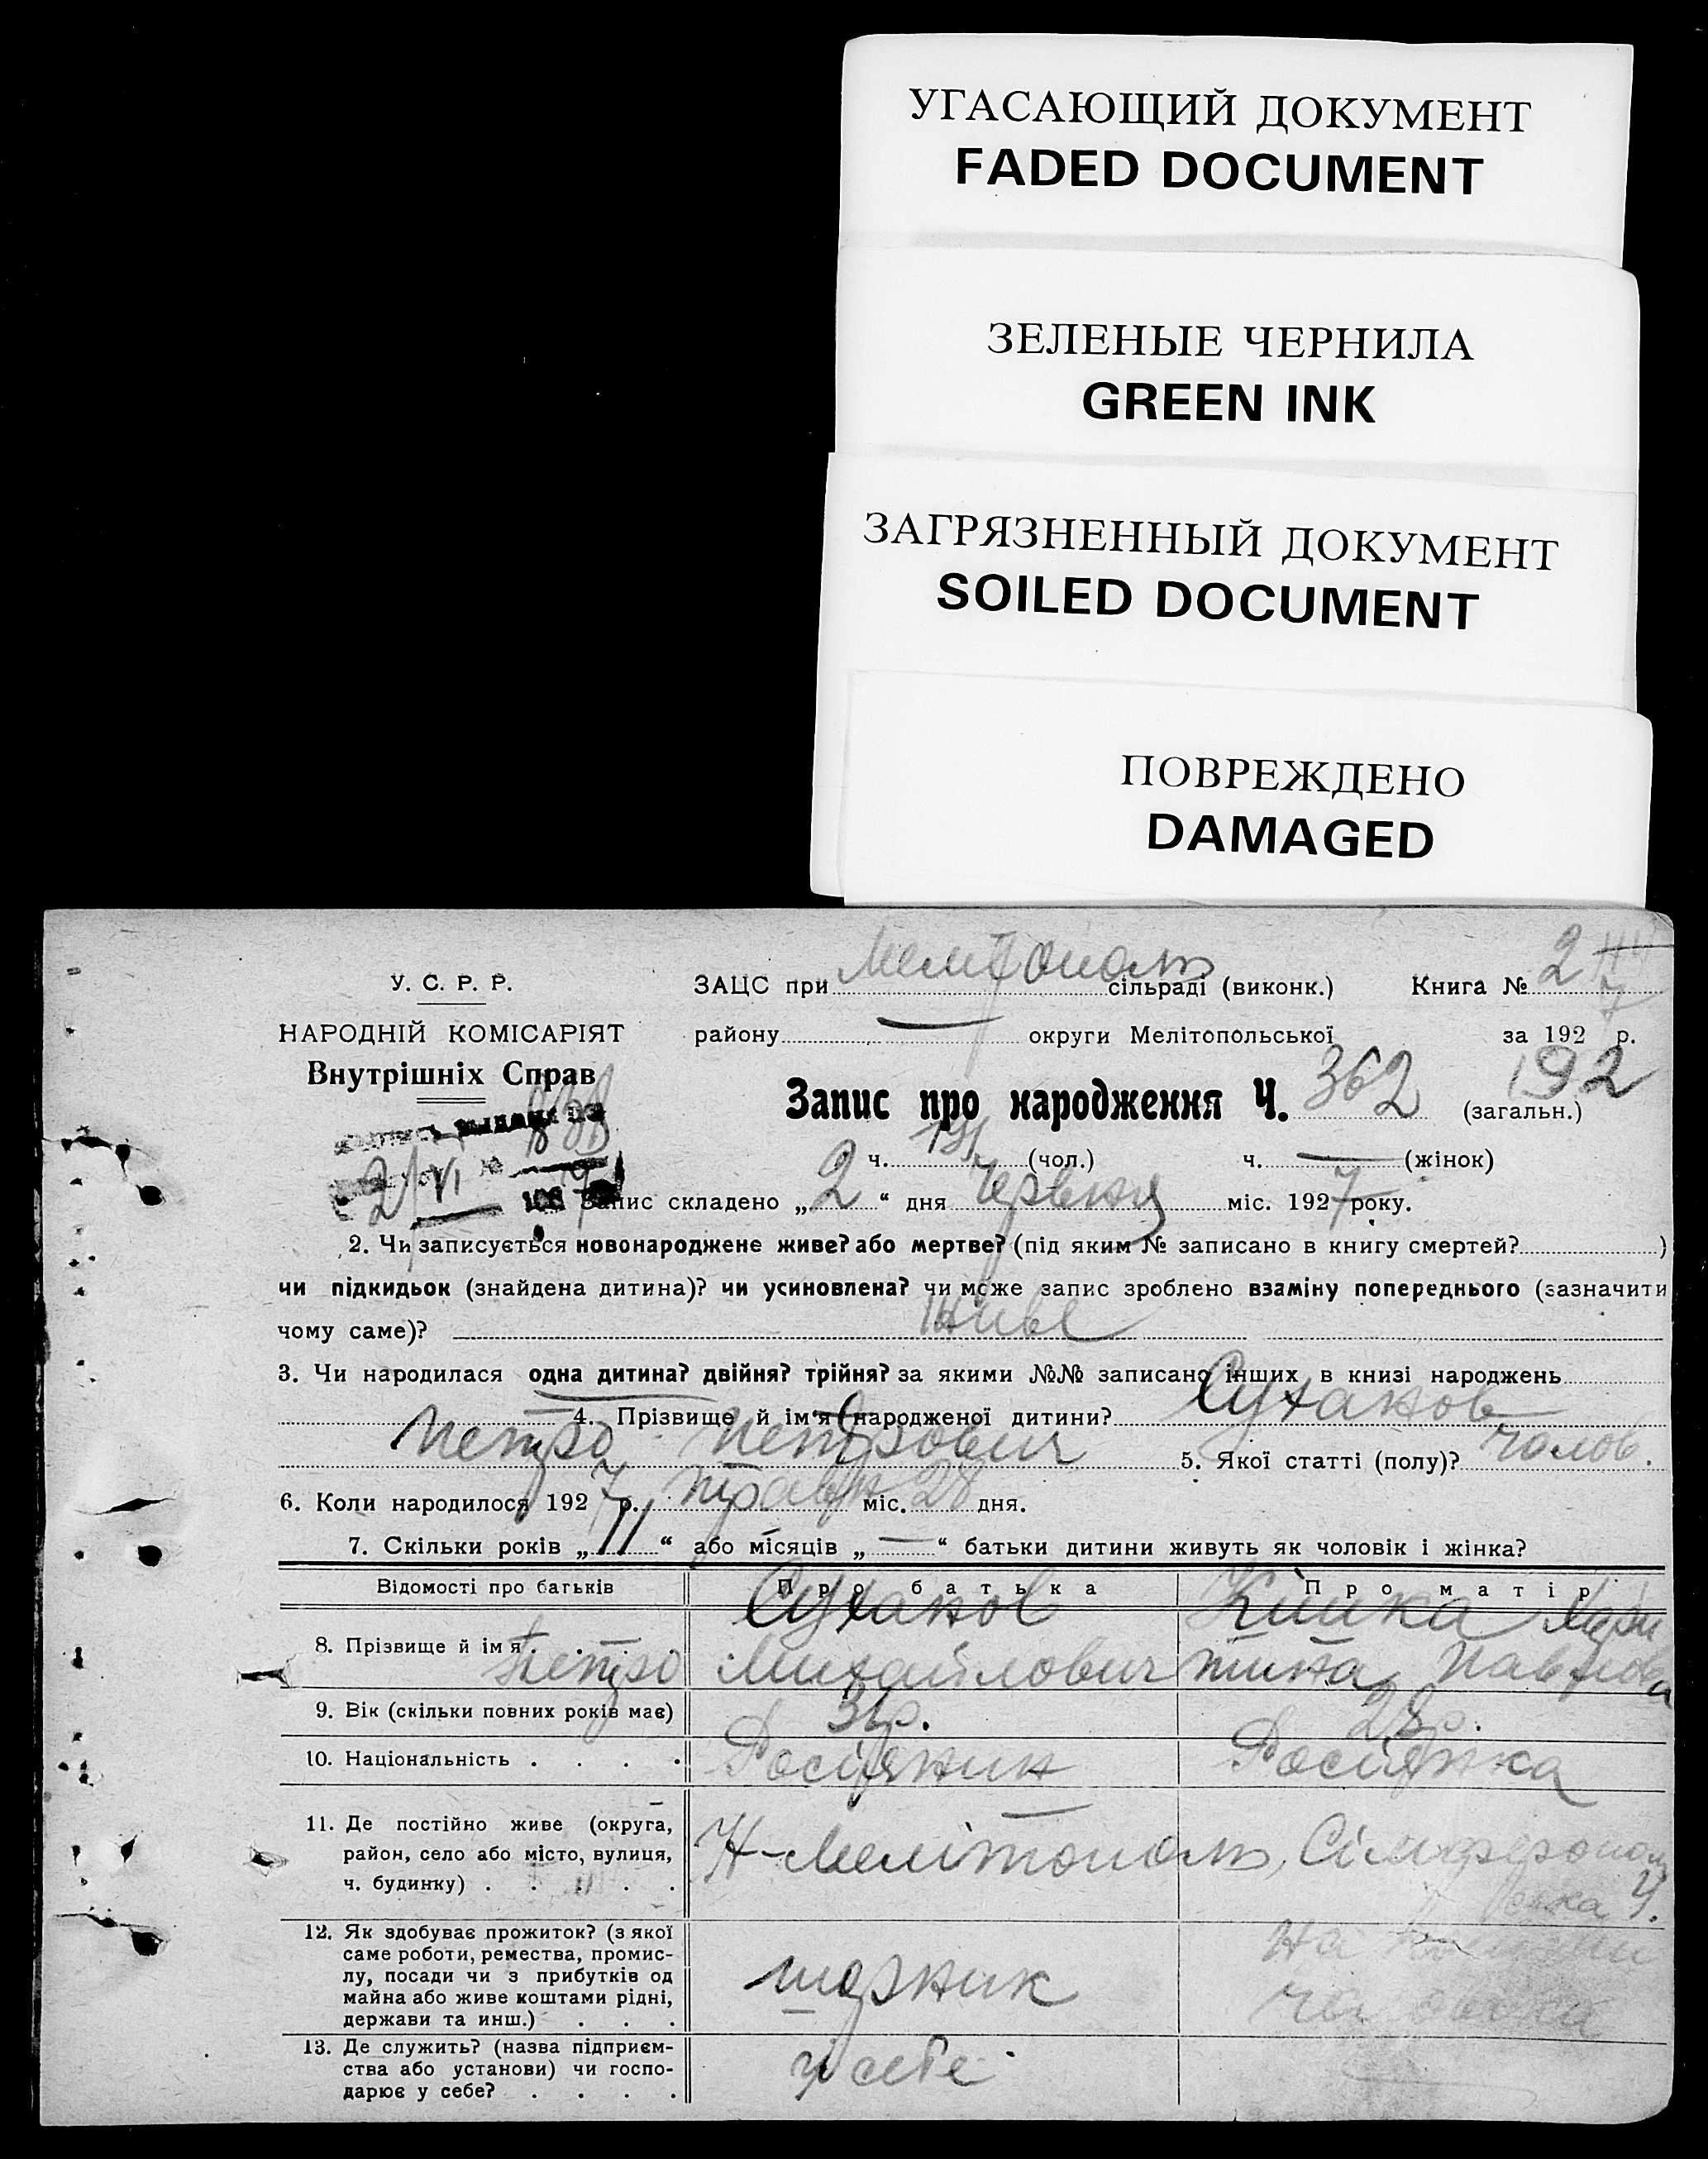 УГАСАЮЩИЙ ДОКУМЕНТ
FADED DOCUMENT
ЗЕЛЕНЫЕ ЧЕРНИЛА
GREEN INK
ЗАГРЯЗНЕННЫЙ ДОКУМЕНТ
SOILED DOCUMENT
ПОВРЕЖДЕНО
DAMAGED
У. С. Р. Р.
НАРОДНІЙ КОМІСАРІЯТ
Внутрішніх Справ
ЗАЦС при Мелітополь сільраді (виконк.) Книга № 2
району — округи Мелітопольської за 1927 р.
Запис про народження Ч. 362 (загальн.) 192
ч. 191 (чол.) ч. — (жінок)
Запис складено „2“ дня Червня міс. 1927 року.
2. Чи записується новонароджене живе? або мертве? (під яким № записано в книгу смертей? )
чи підкидьок (знайдена дитина)? чи усиновлена? чи може запис зроблено взаміну попереднього (зазначити
чому саме)? живе
3. Чи народилася одна дитина? двійня? трійня? за якими №№ записано інших в книзі народжень
4. Прізвище й ім'я народженої дитини? Суханов
Петро Петрович 5. Якої статті (полу)? чолов.
6. Коли народилося 1927 р. травн міс. 28 дня.
7. Скільки років „11“ або місяців „—“ батьки дитини живуть як чоловік і жінка?
Відомості про батьків Про батька Про матір
8. Прізвище й ім'я . . . .
Суханов Петро Михайлович
Кишка Павловна
9. Вік (скільки повних років має) 31р. 28р.
10. Національність . . . . Росіянин Росіянка
11. Де постійно живе (округа,
район, село або місто, вулиця,
ч. будинку) . . . . .
Н-Мелітополь, Сімферополь
ська 4.
12. Як здобуває прожиток? (з якої
саме роботи, ремества, промис-
лу, посади чи з прибутків од
майна або живе коштами рідні,
держави та инш.) . . .
шорник
На
чоловіка
13. Де служить? (назва підприєм-
ства або установи) чи госпо-
дарює у себе? . . . .
у себе